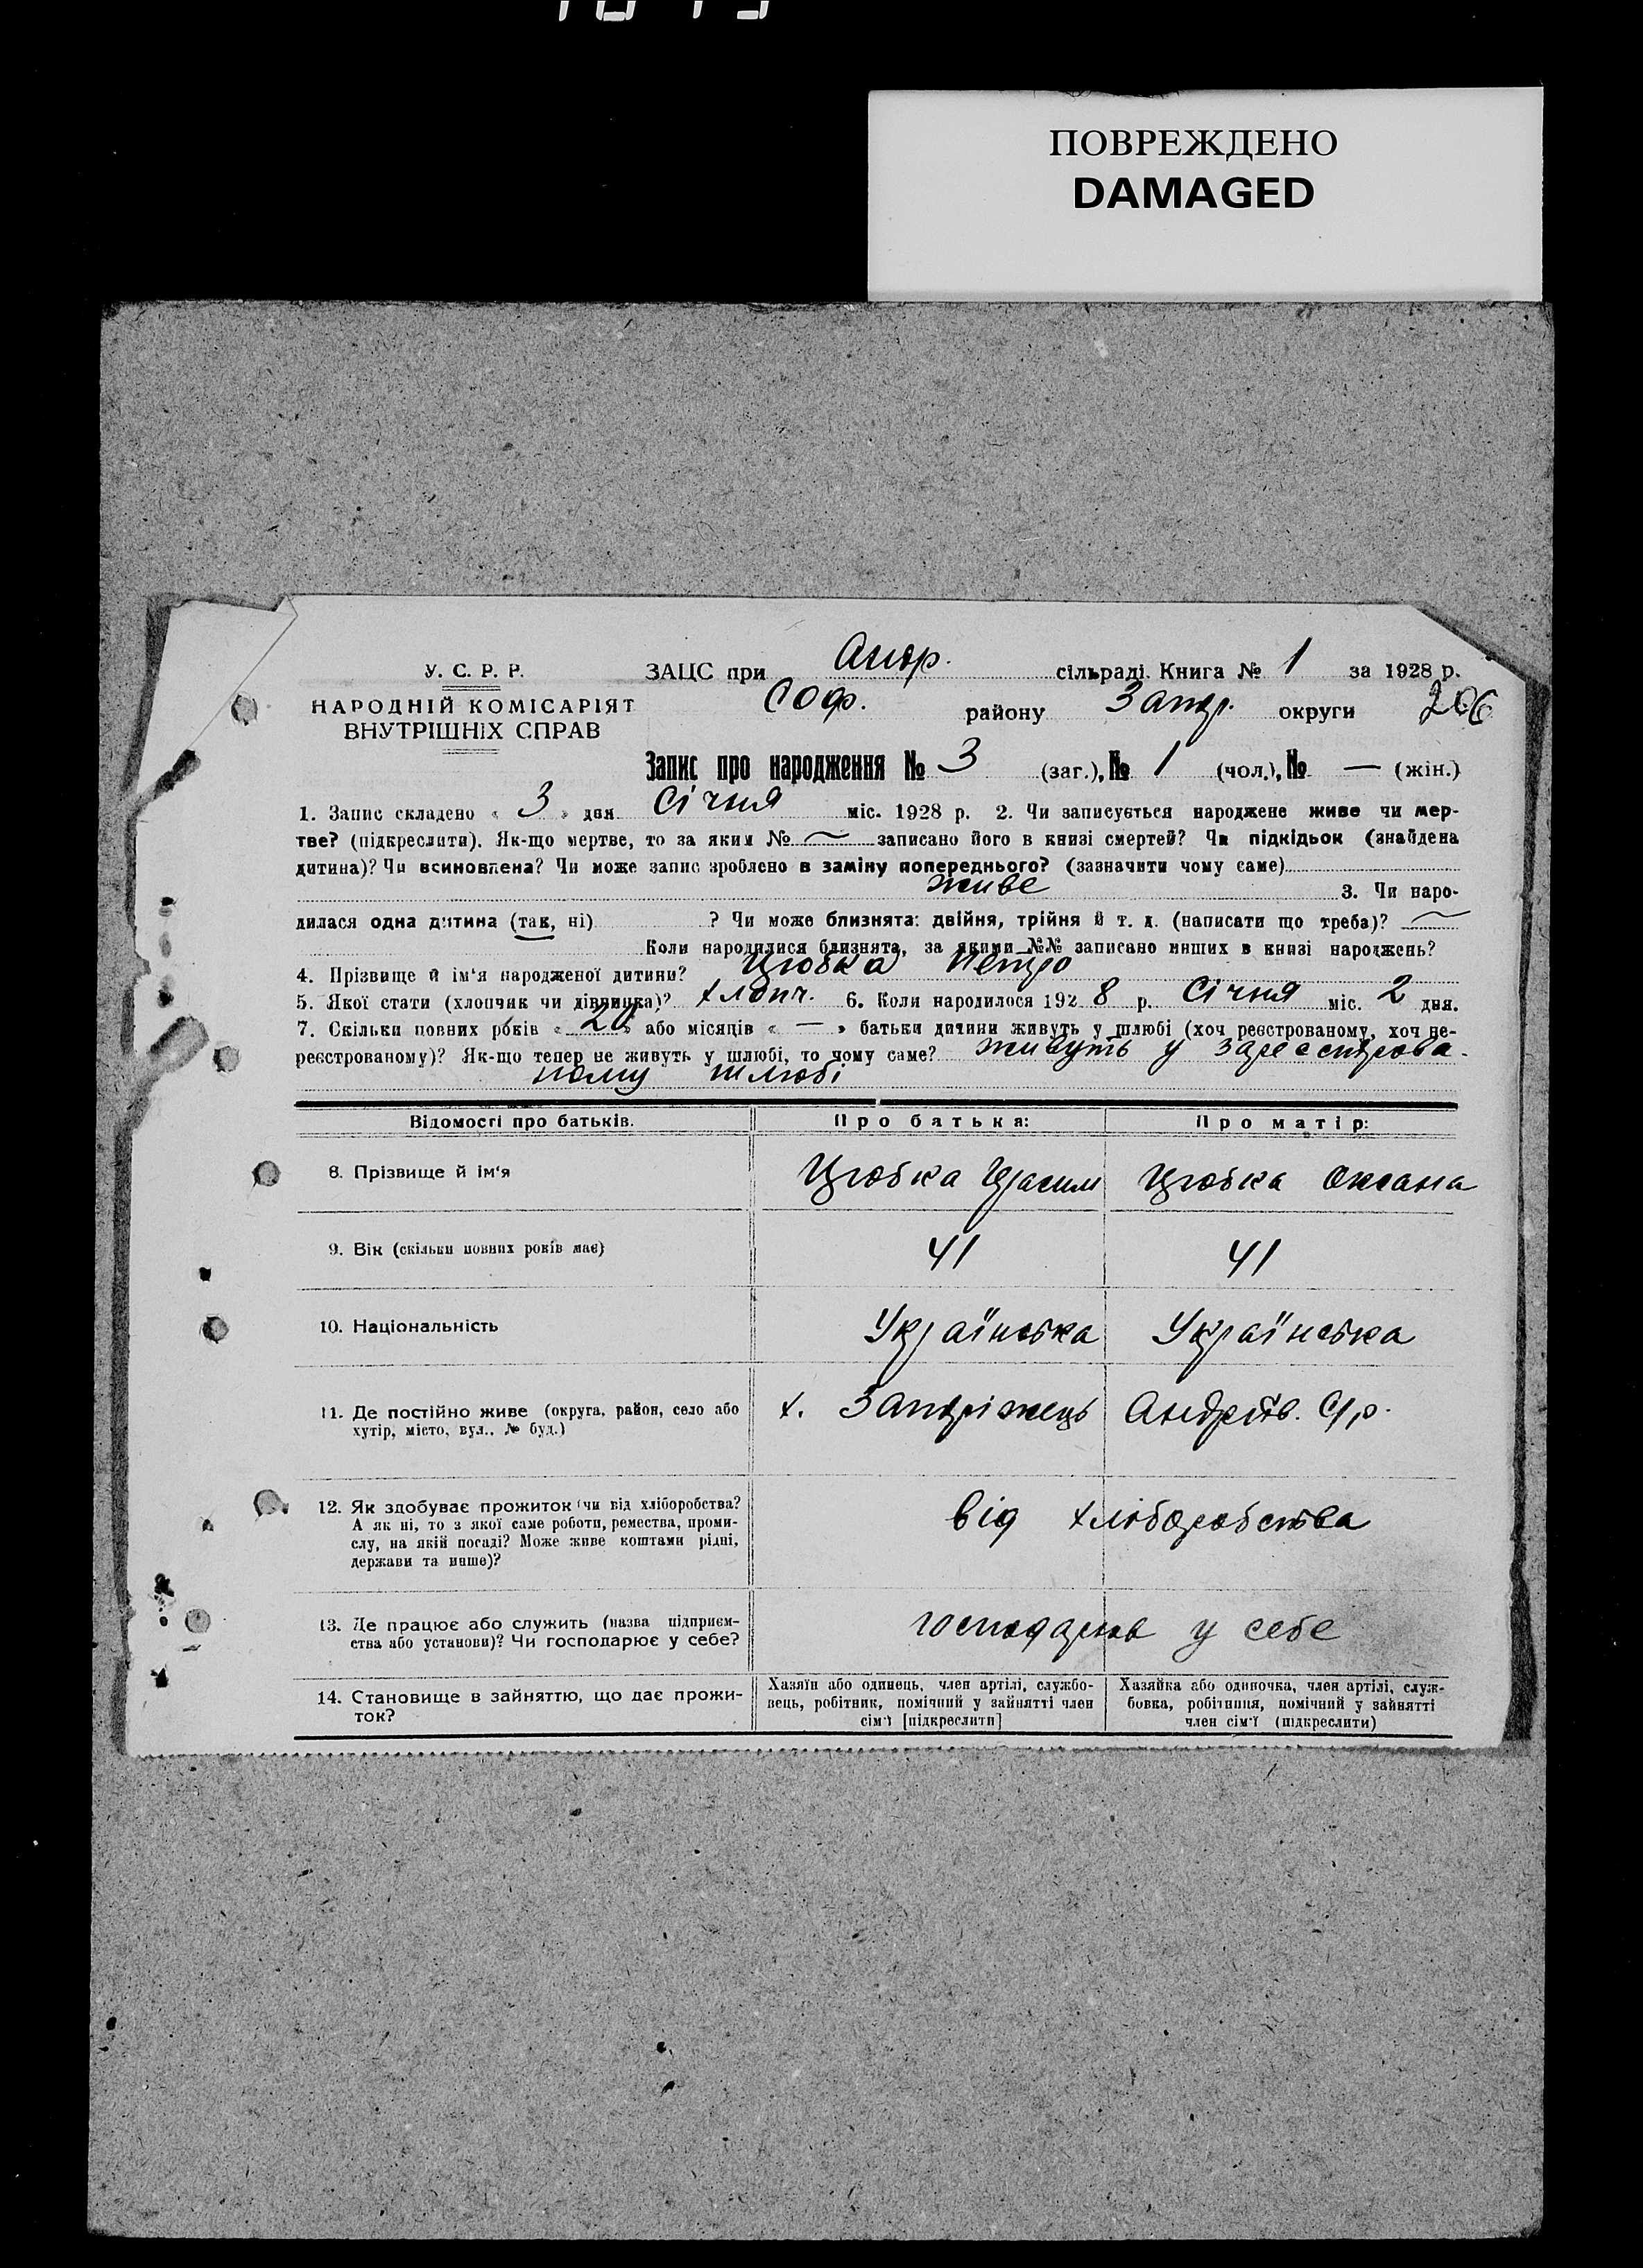 ПОВРЕЖДЕНО
DAMAGED
У. С. Р. Р.
НАРОДНІЙ КОМІСАРІЯТ
ВНУТРІШНІХ СПРАВ
ЗАЦС при Андр. сільраді. Книга № 1 за 1928 р.
Соф. району Запор. округи 206
Запис про народження № 3 (заг.), № 1 (чол.), № — (жін.)
1. Запис складено « 3 » дня Січня міс. 1928 р. 2. Чи записується народжене живе чи мер-
тве? (підкреслити). Як-що мертве, то за яким № — записано його в книзі смертей? Чи підкідьок (знайдена
дитина)? Чи всиновлена? Чи може запис зроблено в заміну попереднього? (зазначити чому саме)
живе 3. Чи наро-
дилася одна дитина (так, ні) ? Чи може близнята: двійня, трійня й т. д. (написати що треба)? —
Коли народилися близнята, за якими №№ записано инших в книзі народжень?
4. Прізвище й ім'я народженої дитини? Цюбка Петро
5. Якої стати (хлопчик чи дівчинка)? хлопч. 6. Коли народилося 1928 р. Січня міс. 2 дня.
7. Скільки повних років « 20 » або місяців « — » батьки дитини живуть у шлюбі (хоч реєстрованому, хоч не-
реєстрованому)? Як-що тепер не живуть у шлюбі, то чому саме? живуть у зареєстрова-
ному шлюбі
Відомості про батьків. Про батька: Про матір:
8. Прізвище й ім'я Цюбка Герасим Цюбка Оксана
9. Вік (скільки повних років має) 41 41
10. Національність Українська Українська
11. Де постійно живе (округа, район, село або
хутір, місто, вул., № буд.) х. Запоріжець Андріїв. С/р.
12. Як здобуває прожиток (чи від хліборобства?
А як ні, то з якої саме роботи, ремества, проми-
слу, на якій посаді? Може живе коштами рідні,
держави та инше)? від хліборобства
13. Де працює або служить (назва підприєм-
ства або установи)? Чи господарює у себе? господарюв у себе
14. Становище в зайняттю, що дає прожи-
ток?
Хазяїн або одинець, член артілі, службо-
вець, робітник, помічний у зайнятті член
сім'ї [підкреслити]
Хазяйка або одиночка, член артілі, служ-
бовка, робітниця, помічний у зайнятті
член сім'ї (підкреслити)